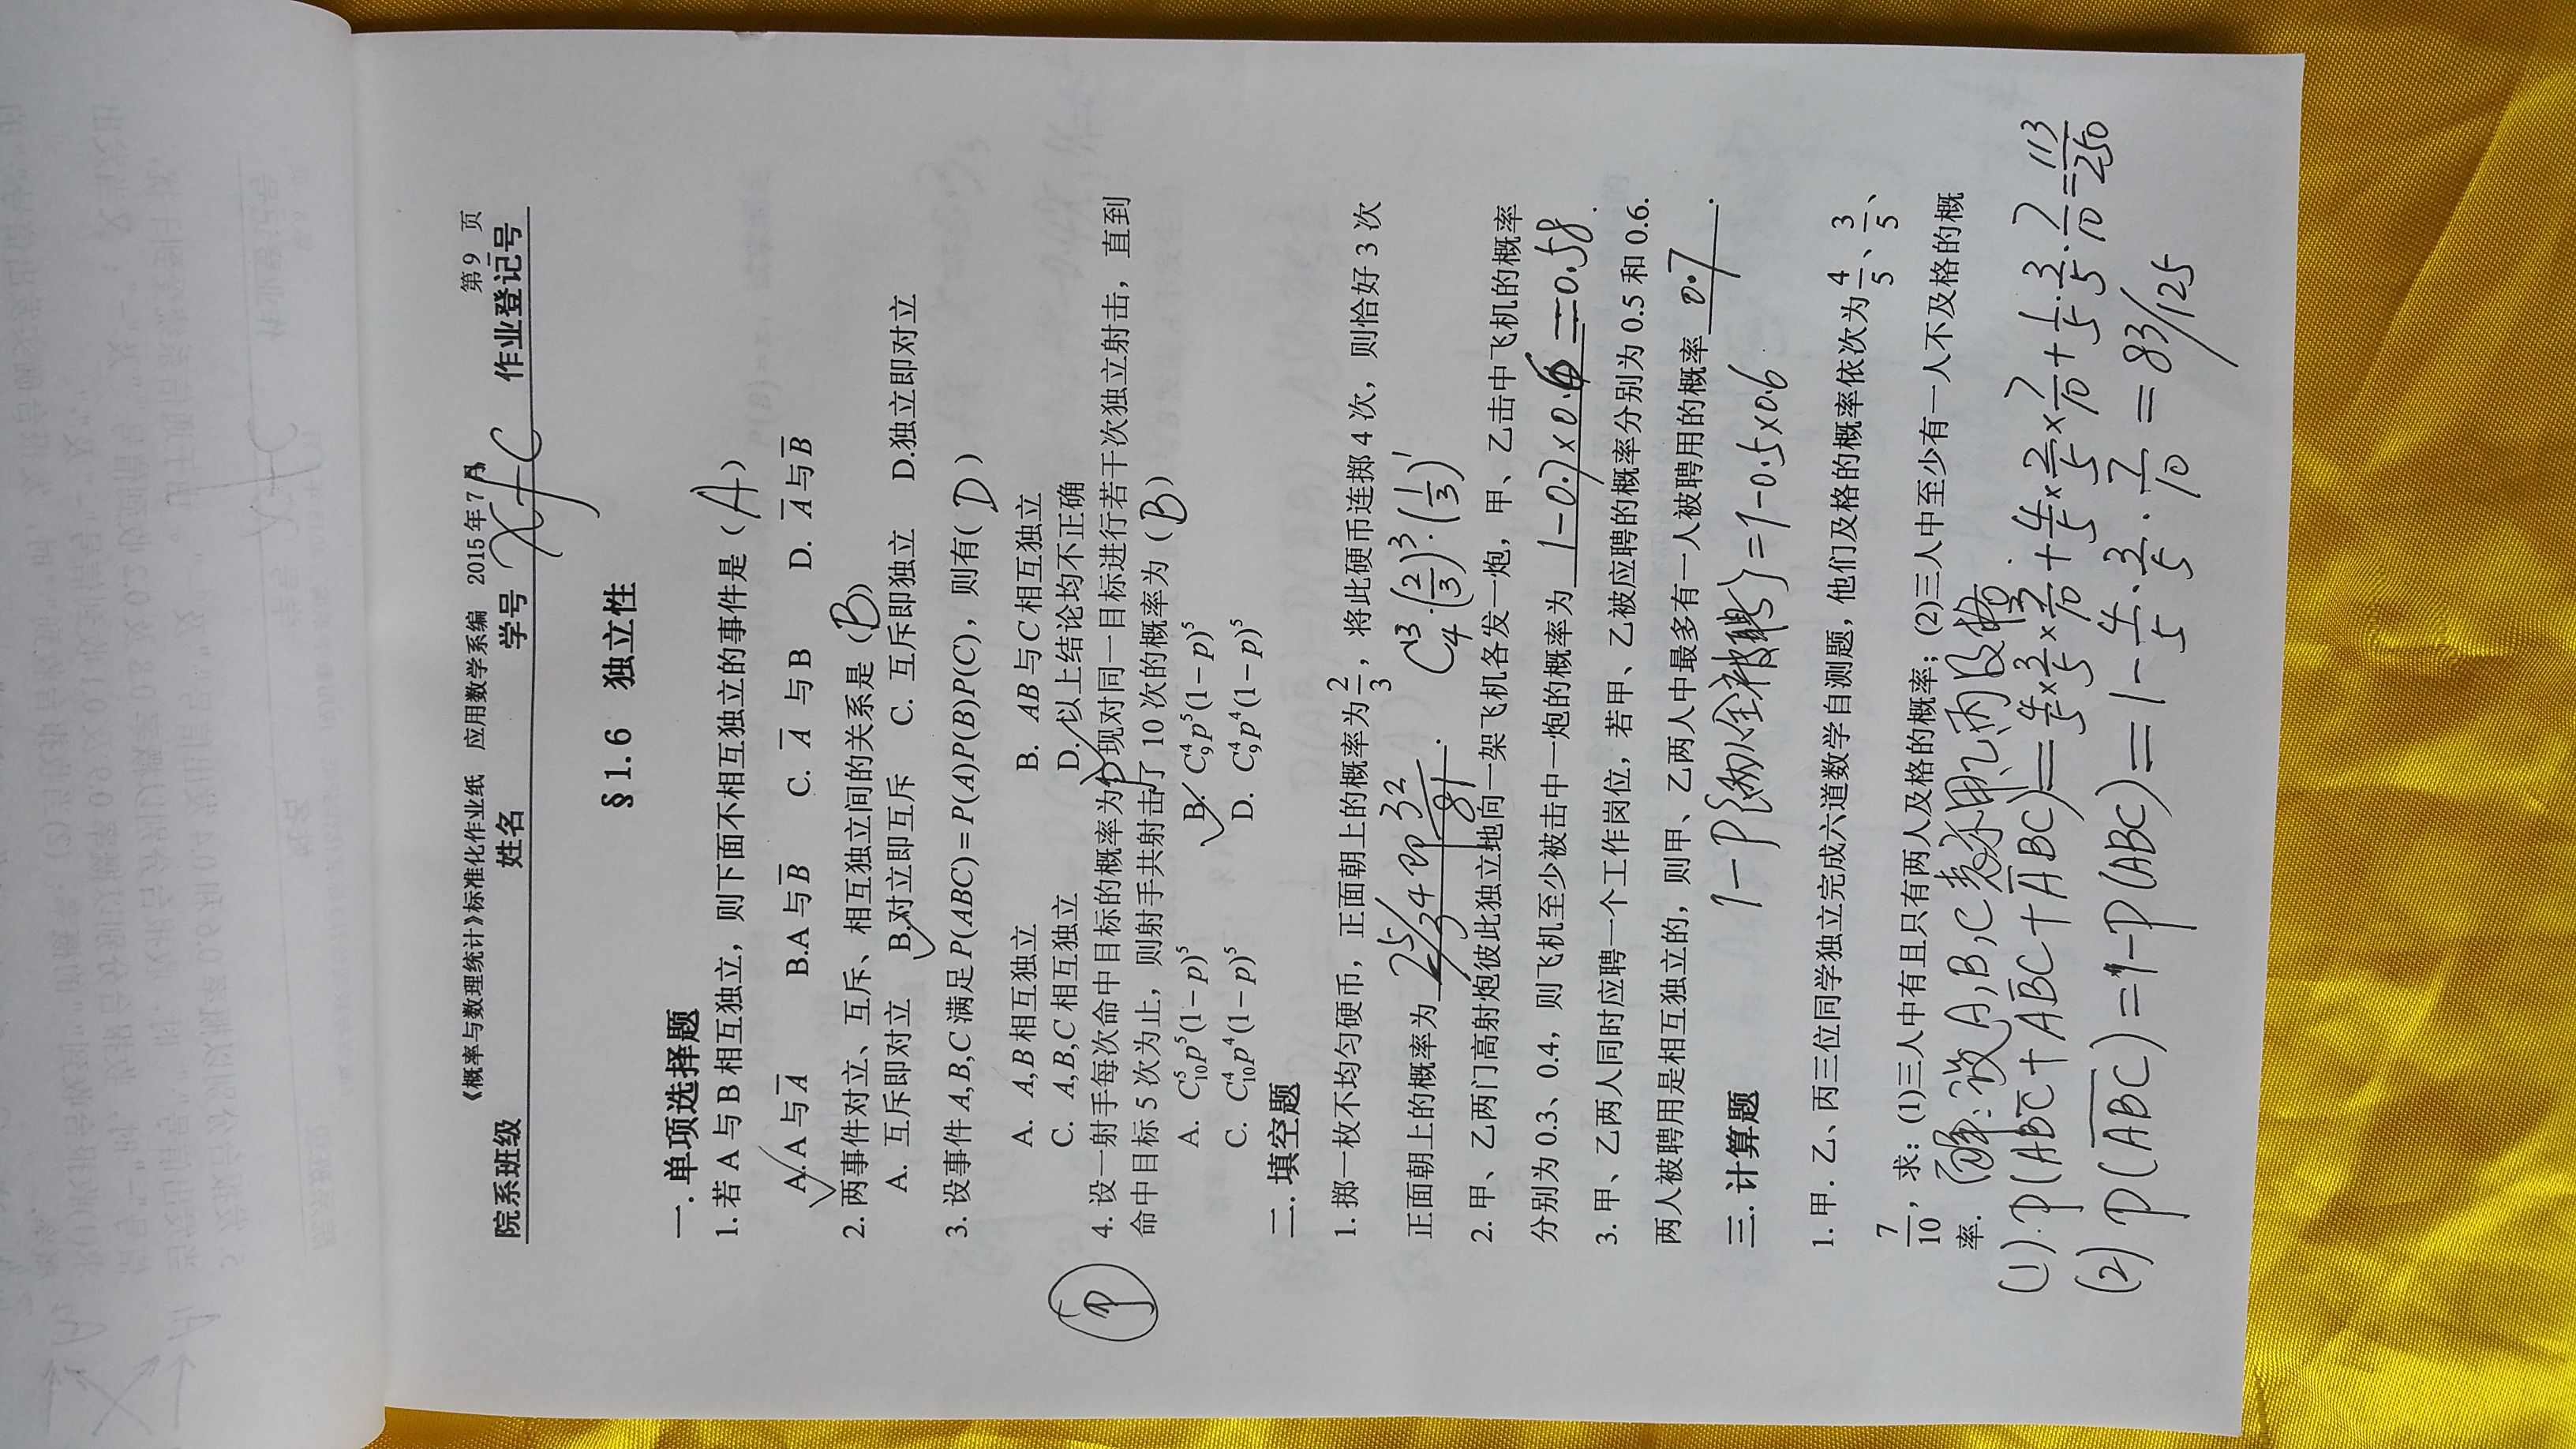 《概率与数理统计》标准化作业纸 应用数学系编 2015年7月 第9页
院系班级 姓名 学号 xfc 作业登记号
§1.6 独立性
一. 单项选择题
1. 若 A 与 B 相互独立，则下面不相互独立的事件是（A）
A. A 与 A̅ B.A 与 B̅ C. A̅ 与 B D. A̅ 与 B̅
2. 两事件对立、互斥、相互独立间的关系是（B）
A. 互斥即对立 B.对立即互斥 C. 互斥即独立 D.独立即对立
3. 设事件 A,B,C 满足 P(ABC) = P(A)P(B)P(C)，则有( D )
A. A,B 相互独立 B. AB 与 C 相互独立
C. A,B,C 相互独立 D. 以上结论均不正确
P 4. 设一射手每次命中目标的概率为p现对同一目标进行若干次独立射击，直到
命中目标 5 次为止，则射手共射击了 10 次的概率为（B）
A. C₁₀⁵p⁵(1−p)⁵ B. C₉⁴p⁵(1−p)⁵
C. C₁₀⁴p⁴(1−p)⁵ D. C₉⁴p⁴(1−p)⁵
二. 填空题
1. 掷一枚不均匀硬币，正面朝上的概率为2/3，将此硬币连掷 4 次，则恰好 3 次
正面朝上的概率为 2⁵/3⁴ 即 32/81. C₄³·(2/3)³·(1/3)¹
2. 甲、乙两门高射炮彼此独立地向一架飞机各发一炮，甲、乙击中飞机的概率
分别为 0.3、0.4，则飞机至少被击中一炮的概率为 1−0.7×0.6=0.58.
3. 甲、乙两人同时应聘一个工作岗位，若甲、乙被应聘的概率分别为 0.5 和 0.6.
两人被聘用是相互独立的，则甲、乙两人中最多有一人被聘用的概率 0.7.
三. 计算题 1−P{两人全被聘}=1−0.5×0.6
1. 甲. 乙、丙三位同学独立完成六道数学自测题，他们及格的概率依次为4/5、3/5、
7/10，求：(1)三人中有且只有两人及格的概率；(2)三人中至少有一人不及格的概
率. 解：设A,B,C表示甲、乙、丙及格.
(1). P(ABC̅+AB̅C+A̅BC)=4/5×3/5×3/10+4/5×2/5×7/10+1/5·3/5·7/10=113/250
(2) P(A̅B̅C̅)=1−P(ABC)=1−4/5·3/5·7/10=83/125